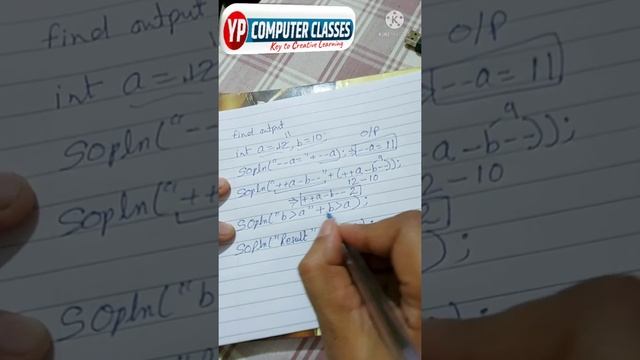 YP COMPUTER CLASSES
Key to Creative Learning
find output
O/P
int a=12
--a=11
find output
11
O/P
int a=12, b=10;
Sopln("--a="+--a); ⇒ --a=11
9
Sopln("++a-b--"+(++a-b--));
12-10
⇒ ++a-b-- 2
Sopln("b>a"+b>a);
Sopln("Result"
9
a-b--));
2-10
Sopln("b